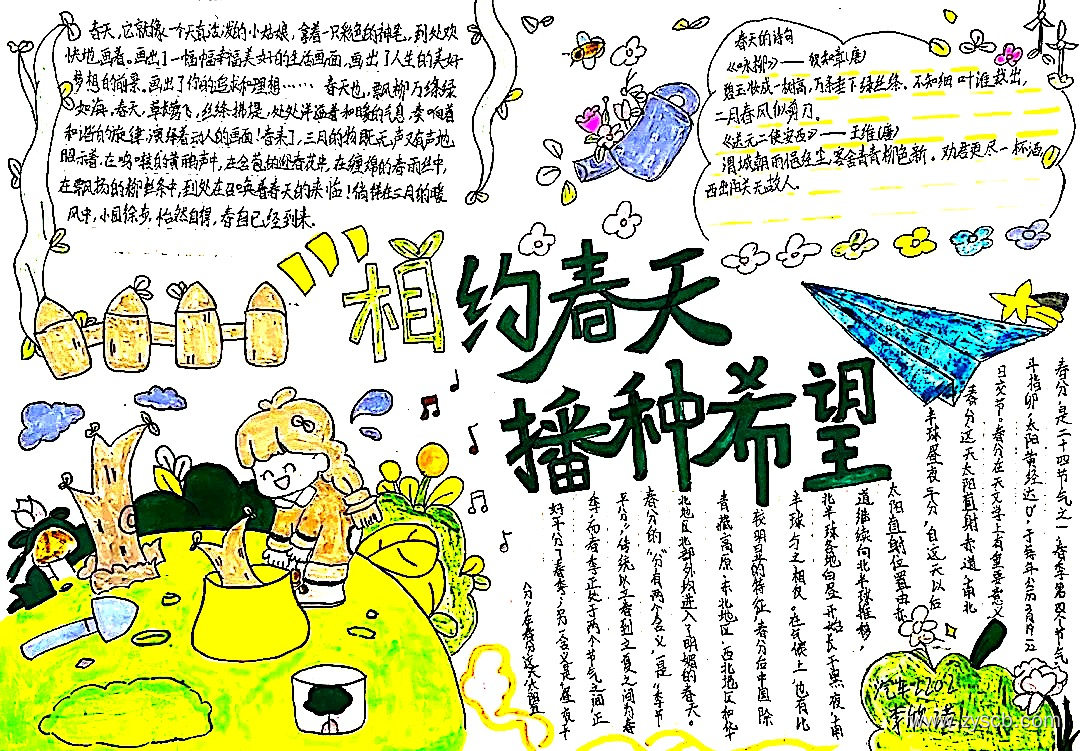 春天,它就像一个天真活泼的小姑娘,拿着一只彩色的神笔,到处欢
快地画着。画出了一幅幅幸福美好的生活画面,画出了人生的美好
梦想的前景。画出了你的追求和理想…… 春天也,飘柳万缕绿
如海。春天,草长莺飞,丝绦拂堤,处处洋溢着和暖的气息,奏响着
和谐的旋律,演绎着动人的画面!春来了,三月的物既无声又有声地
昭示着,在鸣啭的黄鹂声中,在含苞的迎春花中,在缠绵的春雨丝中,
在飘扬的柳丝条中,到处在召唤着春天的来临!徜徉在三月的暖
风中,小园徐步,怡然自得,春自己经到来。
春天的诗句
《咏柳》——贺知章(唐)
碧玉妆成一树高,万条垂下绿丝绦。不知细叶谁裁出,
二月春风似剪刀。
《送元二使安西》——王维(唐)
渭城朝雨浥轻尘,客舍青青柳色新。劝君更尽一杯酒,
西出阳关无故人。
相约春天
播种希望
春分,是二十四节气之一,春季第四个节气。
斗指卯,太阳黄经达0°,于每年公历3月
日交节。春分在天文学上有重要意义,
春分这一天太阳直射赤道,南北
半球昼夜平分,自这天以后
太阳直射位置
道继续向北半球推移,
北半球各地白昼开始长于黑夜,南
半球与之相反。在气候上,也有比
较明显的特征,春分后中国除
青藏高原、东北地区、西北地区和华
北地区北部外均进入了明媚的春天。
春分的“分”有两个含义,一是“季节
平分”,传统以立春到立夏之间为春
季,而春季正处于两个节气之间,正
好平分了春季;另一含义是“昼夜平
分”,在春分这天,太阳
www.zyscb.com